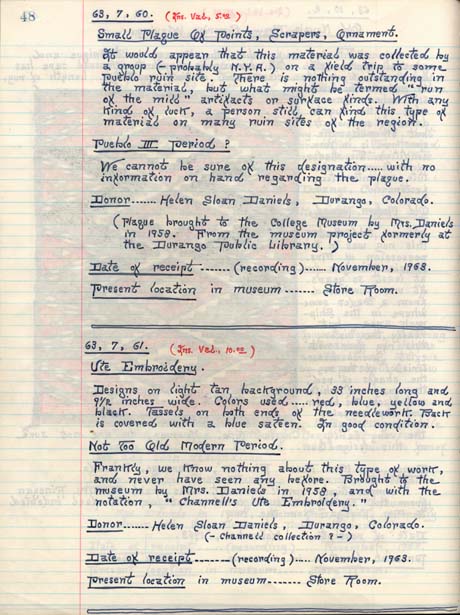 48
63, 7, 60. (Ins. Val, 5.00)
Small Plaque Of Points, Scrapers, Ornament.
It would appear that this material was collected by
a group (-probably N.Y.A.) on a field trip to some
Pueblo ruin site. There is nothing outstanding in
the material, but what might be termed "run
of the mill" artifacts or surface finds. With any
kind of luck, a person still can find this type of
material on many ruin sites of the region.
Pueblo III Period ?
We cannot be sure of this designation.....with no
information on hand regarding the plaque.
Donor....... Helen Sloan Daniels, Durango, Colorado.
(Plaque brought to the College Museum by Mrs. Daniels
in 1958. From the museum project formerly at
the Durango Public Library.)
Date of receipt-------(recording)...... November, 1963.
Present location in museum ------- Store Room.
63, 7, 61. (Ins. Val, 10.00)
Ute Embroidery.
Designs on light tan background, 33 inches long and
9½ inches wide. Colors used.....red, blue, yellow and
black. Tassels on both ends of the needlework. Back
is covered with a blue sateen. In good condition.
Not Too Old Modern Period.
Frankly, we know nothing about this type of work,
and never have seen any before. Brought to the
museum by Mrs. Daniels in 1958, and with the
notation, "Channell's Ute Embroidery."
Donor...... Helen Sloan Daniels, Durango, Colorado.
(-Channell collection ?-)
Date of receipt--------(recording)..... November, 1963.
Present location in museum------- Store Room.